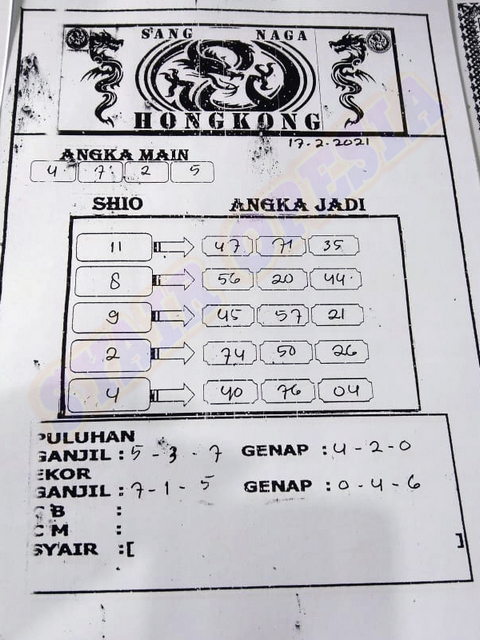 SANG NAGA
HONGKONG
17-2-2021
ANGKA MAIN
4 7 2 5
SHIO ANGKA JADI
11 47 71 35
8 56 20 44
9 45 57 21
2 74 50 26
4 40 76 04
PULUHAN
GANJIL : 5 - 3 - 7 GENAP : 4 - 2 - 0
EKOR
GANJIL : 7 - 1 - 5 GENAP : 0 - 4 - 6
B :
M :
SYAIR :[ ]